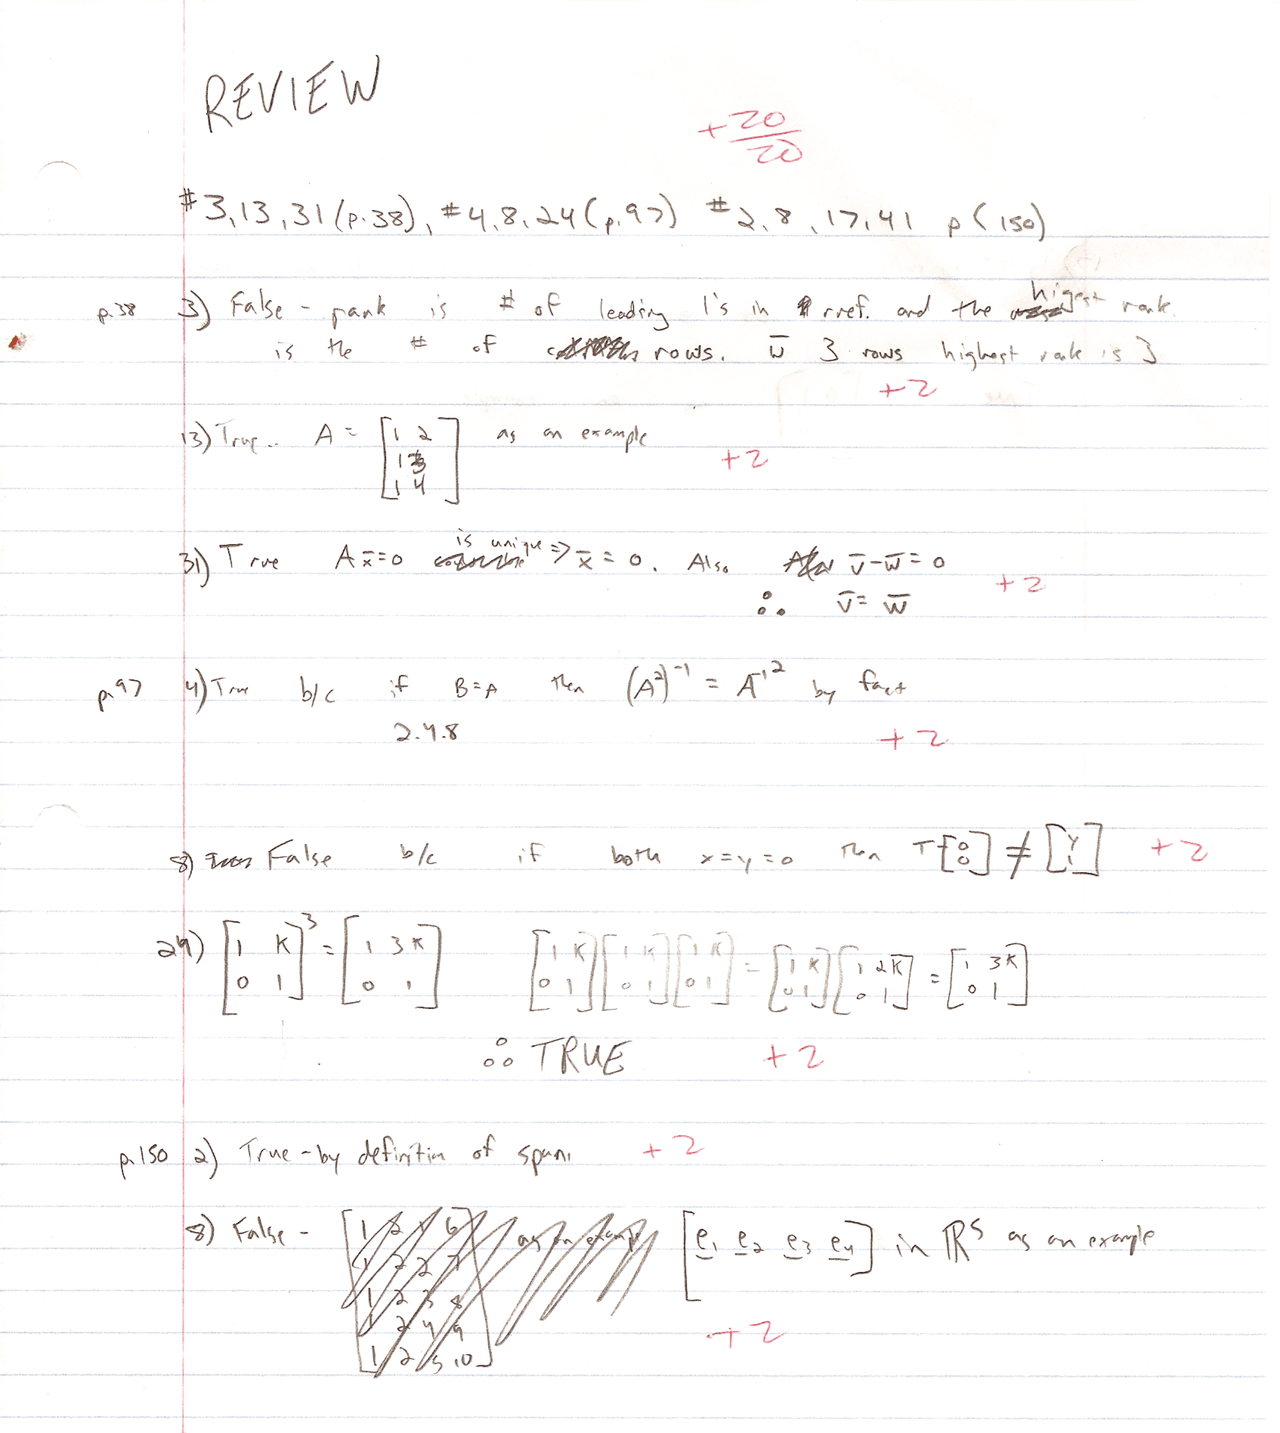 REVIEW
+20/20
#3,13,31(p.38), #4,8,24(p.97) #2,8,17,41 p(150)
p.38 3) False - rank is # of leading 1's in rref. and the higest rank
is the # of rows. w̄ 3 rows highest rank is 3
+2
13) True.. A = [1 2; 1 3; 1 4] as an example +2
31) True Ax̄=0 is unique ⇒ x̄ = 0. Also v̄-w̄=0 +2
∴ v̄ = w̄
p.97 4) True b/c if B=A then (A²)⁻¹ = A⁻¹² by fact
2.4.8 +2
8) False b/c if both x=y=0 then T[0; 0] ≠ [y; 1] +2
24) [1 K; 0 1]³ = [1 3K; 0 1] [1 K; 0 1][1 K; 0 1][1 K; 0 1] = [1 K; 0 1][1 2K; 0 1] = [1 3K; 0 1]
∴ TRUE +2
p.150 2) True - by definition of span. +2
8) False - [e1 e2 e3 e4] in ℝ⁵ as an example
+2